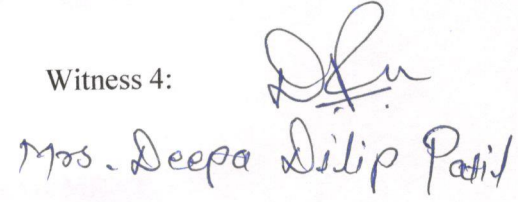 Witness 4:
Mrs. Deepa Dilip Patil